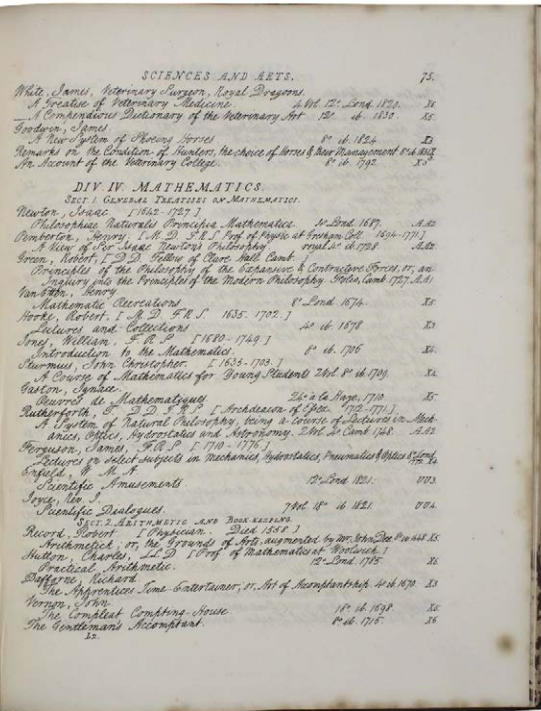 SCIENCES AND ARTS. 75.
White, James, Veterinary Surgeon, Royal Dragoons.
A Treatise of Veterinary Medicine. 4 Vol 12º Lond. 1820. X6
A Compendious Dictionary of the Veterinary Art 12º ib. 1830 X5.
Goodwin, James.
A New System of Shoeing Horses 8º ib. 1824 X3
Remarks on the Condition of Hunters, the choice of Horses & their Management 8º ib.
An Account of the Veterinary College. 8º ib. 1792. X5
DIV. IV. MATHEMATICS.
SECT. 1. GENERAL TREATISES ON MATHEMATICS.
Newton, Isaac [1642-1727]
Philosophiae Naturalis Principia Mathematica. 4º Lond. 1687. AA2
Pemberton, Henry, [M.D. F.R.S. Prof. of Physic at Gresham Coll. 1694-1771]
A View of Sir Isaac Newton's Philosophy royal 4º ib. 1728. AA2.
Green, Robert, [D.D. Fellow of Clare Hall Camb.]
Principles of the Philosophy of the Expansive & Contractive Forces, or, an
Inquiry into the Principles of the Modern Philosophy. Folio, Camb. 1727. AA1
Van Etten, Henry
Mathematic Recreations 8º Lond. 1674. X5
Hooke, Robert, [M.D. F.R.S. 1635. 1702.]
Lectures and Collections 4º ib. 1678 X3
Jones, William, F.R.S. [1680-1749.]
Introduction to the Mathematics. 8º ib. 1706 X4.
Sturmius, John Christopher. [1635-1703.]
A Course of Mathematics for Young Students 2 Vol. 8º ib. 1709. X4
Gaston, Ignace
Oeuvres de Mathematiques 24º à la Haye, 1710. X5
Rutherforth, T. D.D. F.R.S. [Archdeacon of Essex. 1712-1771.]
A System of Natural Philosophy, being a course of Lectures in Mech-
anics, Optics, Hydrostatics and Astronomy. 2 Vol. 4º Camb. 1748. AA2
Ferguson, James, F.R.S. [1710-1776]
Lectures on select subjects in Mechanics, Hydrostatics, Pneumatics & Optics 8º Lond. X4
Enfield, W. M.A.
Scientific Amusements. 12º Lond 1821. UU3.
Joyce, Rev. J.
Scientific Dialogues. 7 Vol 18º ib 1821. UU4.
SECT. 2. ARITHMETIC AND BOOK-KEEPING.
Record, Robert [Physician. Died 1558.]
Arithmetick; or, the Grounds of Arts, augmented by Mr. John Dee 8º ib 1648 X5.
Hutton, Charles, LL.D [Prof. of Mathematics at Woolwich.]
Practical Arithmetic. 12º Lond. 1785. X6
Dafforne, Richard
The Apprentices Time-Entertainer, or, Art of Accomptantship. 4º ib. 1670. X3
Vernon, John
The Compleat Compting-House 18º ib. 1698. X6
The Gentleman's Accomptant. 8º ib. 1715. X6
L2.